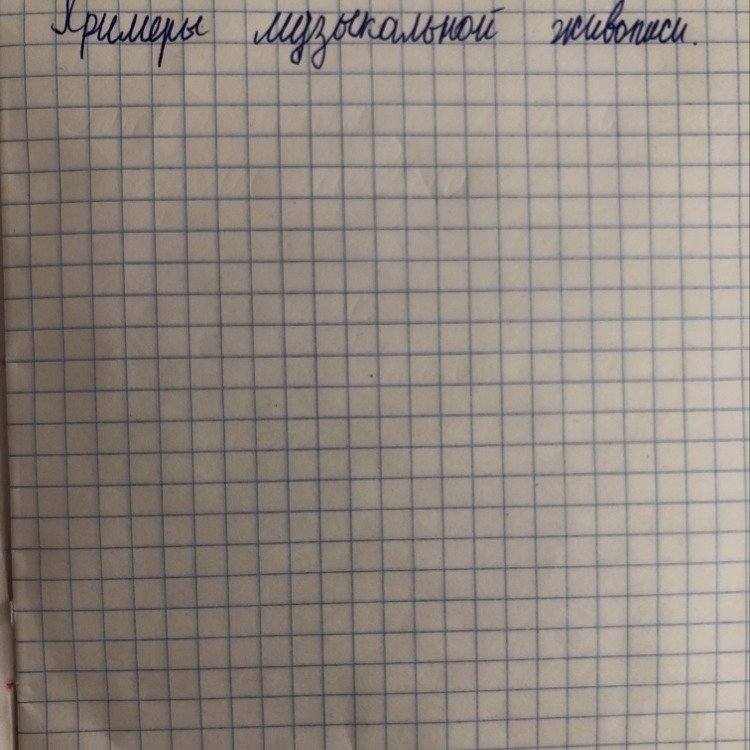 Примеры музыкальной живописи.